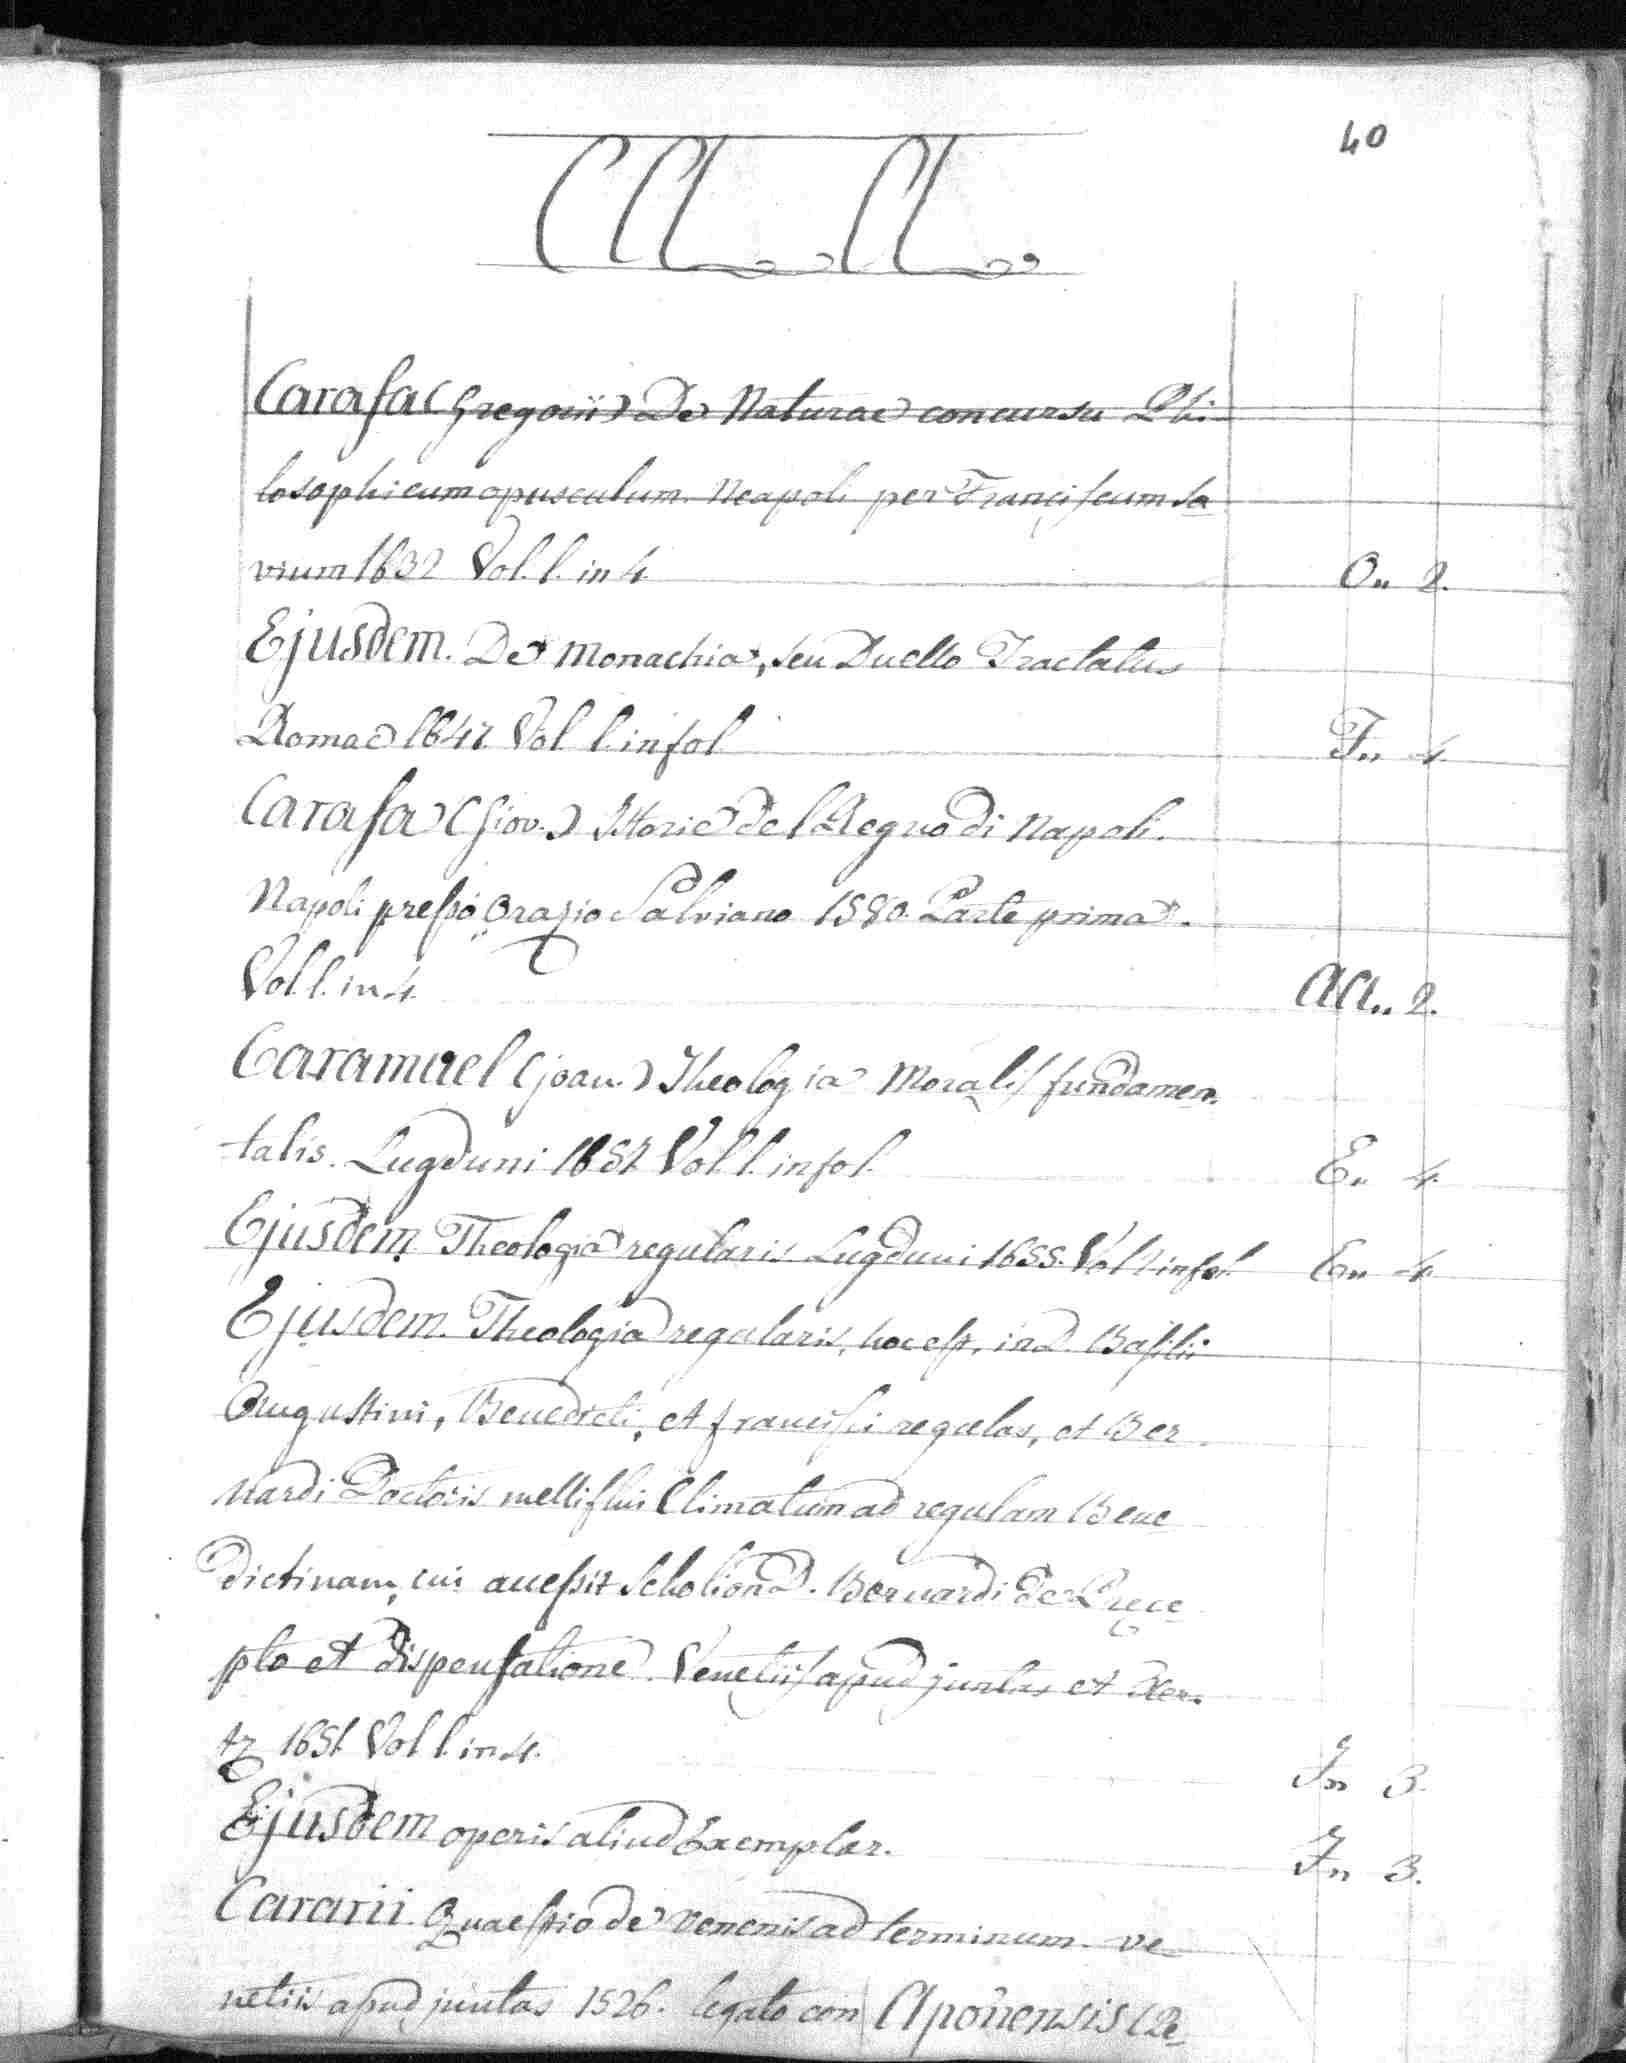 40
CA. A.
Carafa (Gregorii) De Naturae concursu Phi-
losophicum opusculum. Neapoli per Franciscum Sa
vium 1632 Vol. 1. in 4. O,, 2.
Ejusdem. De Monachia, seu Duello Tractatus
Romae 1647. Vol. 1. in fol. F,, 4.
Carafa (Giov.) Istorie del Regno di Napoli.
Napoli presso Orazio Salviano 1580. Parte prima.
Vol. 1. in 4. AA,, 2.
Caramuel (Joan.) Theologia Moralis fundamen-
talis. Lugduni 1657 Vol. 1. in fol. E,, 4.
Ejusdem Theologia regularis Lugduni 1655. Vol 2 in fol. E,, 4.
Ejusdem. Theologia regularis, hoc est, in D. Basilii
Augustini, Benedicti, et Francisci regulas, et Ber
nardi Doctoris melliflui Climatum ad regulam Bene
dictinam, cui accessit Scholion D. Bernardi de Prece
pto et dispensatione. Venetiis apud Juntas et Her-
tz 1651 Vol 1. in 4. I,, 3.
Ejusdem operis aliud Exemplar. I,, 3.
Cararii Quaestio de venenis ad terminum. Ve
netiis apud Juntas 1526. legato con Aponensis (Pe